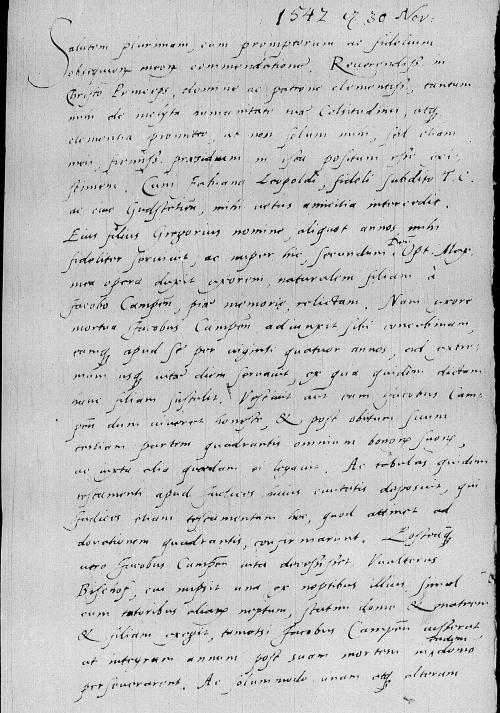 1542 30 Nov:
Salutem plurimam, cum promptorum ac fidelium
obsequiorum meorum commendatione. Reverendiss in
Christo Princeps, domine ac patrone clementiss, tantum
mihi de humanitate tuae Celsitudinis, atq
clementia promitto, ut non solum mihi, sed etiam
meis, firmiss. praesidium in ista positum esse exi-
stimem. Cum Fabiano Leopoldi, fideli subdito T. C.
ac cive mihi vetus amicitia intercedit.
Eius filius Gregorius nomine, aliquot annos mihi
fideliter servivit, ac nuper hic, secundum Deum Opt. Max.
mea opera duxit uxorem, naturalem filiam à
Jacobo Campen, piae memoriae, relictam. Nam uxore
mortua Jacobus Campen adiunxit sibi concubinam,
eamq apud se per viginti quatuor annos, ad extre-
mum usq vitae diem servavit, ex qua quidem dictam
hanc filiam sustulit. Vestivit aut eam Jacobus Cam-
pen dum viveret honeste, & post obitum suum
tertiam partem quadrantis omnium bonorum suorum,
ac iuxta alia quaedam ei legavit. Ac tabulas quidem
testamenti apud Judices huius civitatis deposuit, qui
Judices etiam testamentum hoc, quod attinet ad
donationem quadrantis, confirmarunt. Posteaq
vero Jacobus Campen vita decessisset, Vualterus
Bischof, cui nupsit una ex neptibus illius, simul
cum tutoribus aliarum neptum, statim domo & matrem
& filiam exegit, tametsi Jacobus Campen iusserat
ut integrum annum post suam mortem in eadem domo
perseverarent. Ac solummodo unam atq alteram